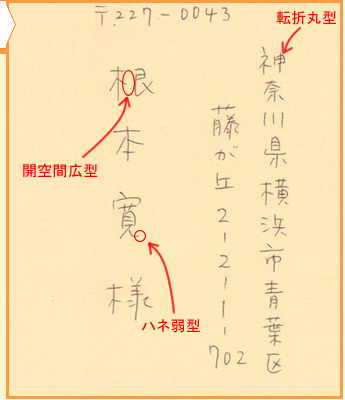 〒227-0043
神奈川県横浜市青葉区
藤が丘2-2-1-1-702
根本寛様
転折丸型
開空間広型
ハネ弱型